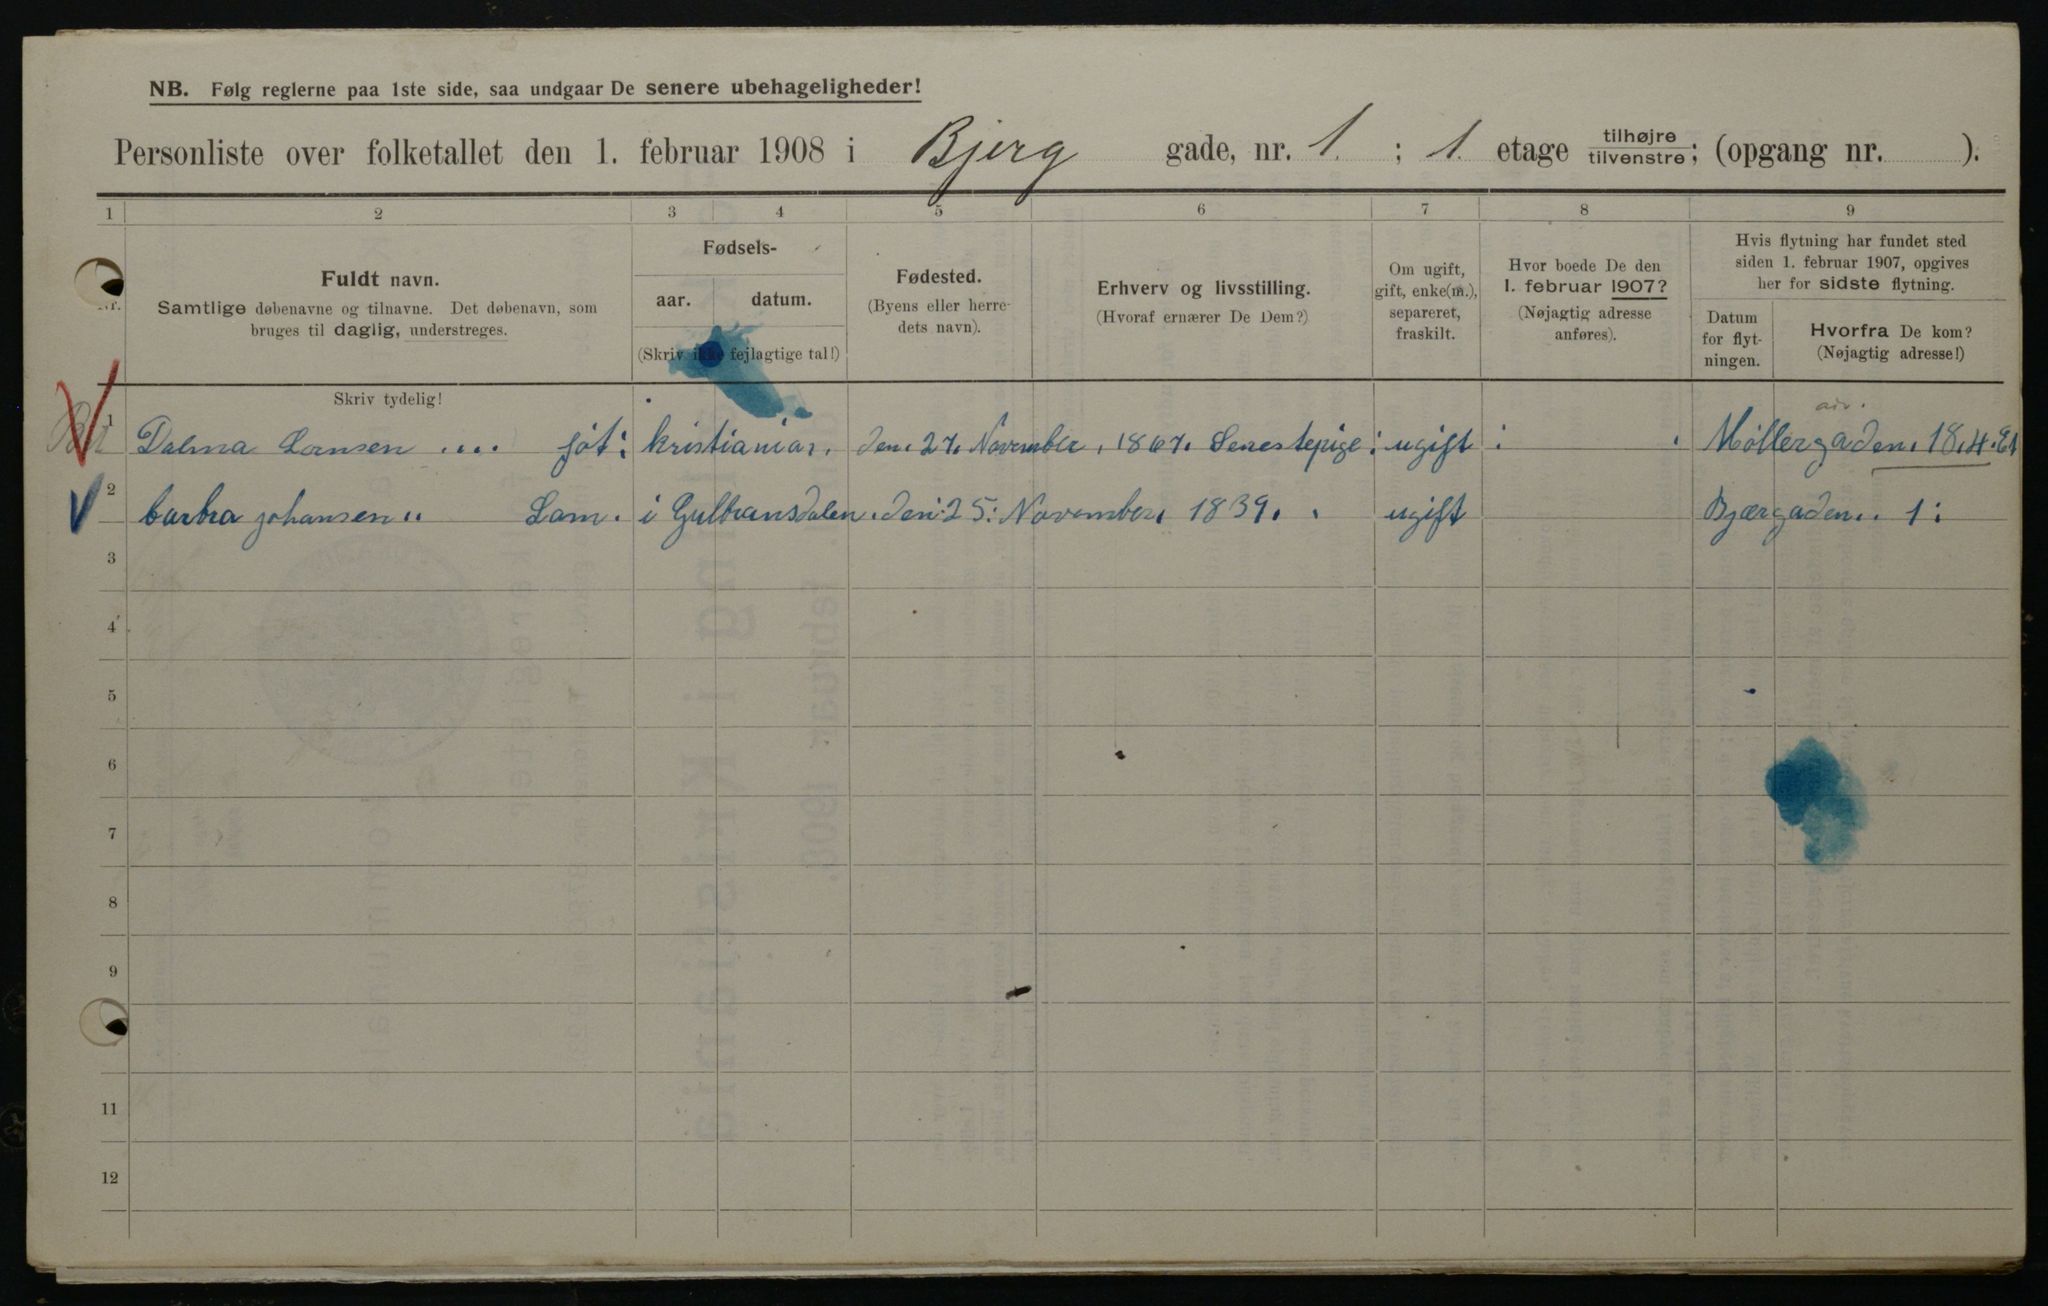 NB. Følg reglerne paa 1ste side, saa undgaar De senere ubehageligheder!
Personliste over folketallet den 1. februar 1908 i Bjerg gade, nr. 1. ; 1. etage tilhøjre/tilvenstre; (opgang nr. ).
1 2 3 4 5 6 7 8 9
Nr.
Fuldt navn.
Samtlige døbenavne og tilnavne. Det døbenavn, som
bruges til daglig, understreges.
Fødsels-
aar. datum.
(Skriv ikke fejlagtige tal!)
Fødested.
(Byens eller herre-
dets navn).
Erhverv og livsstilling.
(Hvoraf ernærer De Dem?)
Om ugift,
gift, enke(m.),
separeret,
fraskilt.
Hvor boede De den
1. februar 1907?
(Nøjagtig adresse
anføres).
Hvis flytning har fundet sted
siden 1. februar 1907, opgives
her for sidste flytning.
Datum
for flyt-
ningen.
Hvorfra De kom?
(Nøjagtig adresse!)
Skriv tydelig!
1 Dalma Larnsen .... føt: kristiania, den. 27. November, 1867. Senestepige: ugift : . Møllergaden. 18.4.Et
2 barbra johansen .. Lam. i Gulbransdalen. den: 25: November. 1839. . ugift Bjærgaden.. 1:
3
4
5
6
7
8
9
11
12